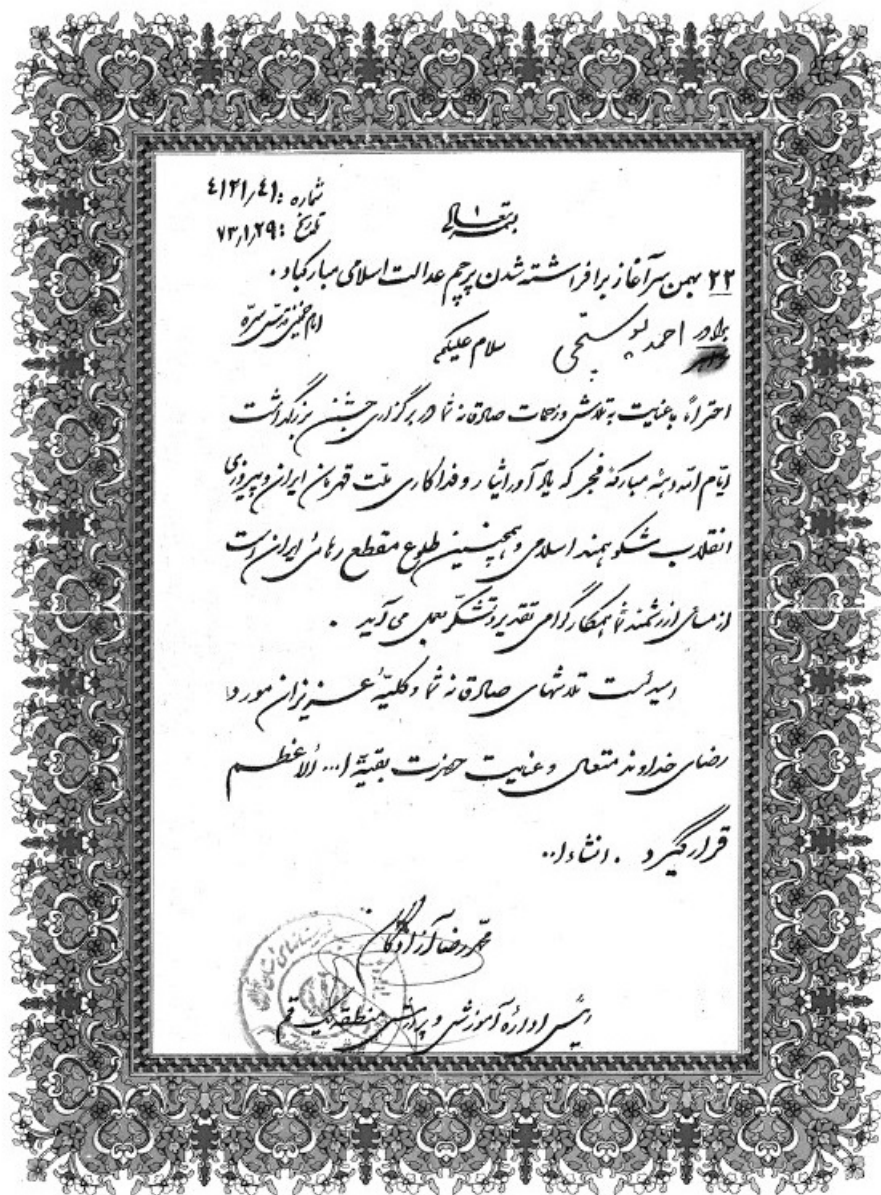 شماره : ۴۱۲۱/۴۱
تاریخ : ۷۳/۱/۲۹
بسمه تعالی
۲۲ بهمن سرآغاز برافراشته شدن پرچم عدالت اسلامی مبارکباد .
امام خمینی قدس سره
برادر احمد
خواهر
سلام علیکم
احتراماً با عنایت به تلاش و زحمات صادقانه شما در برگزاری جشن بزرگداشت
ایام الله دهه مبارکه فجر که یادآور ایثار و فداکاری ملت قهرمان ایران و پیروزی
انقلاب شکوهمند اسلامی و همچنین طلوع مقطع رهائی ایران است
از مساعی ارزشمند شما همکار گرامی تقدیر و تشکر بعمل می آید .
امید است تلاشهای صادقانه شما و کلیه عزیزان مورد
رضای خداوند متعال و عنایت حضرت بقیة ا... الاعظم
قرار گیرد . انشاءا..
محمدرضا آزادگان
رئیس اداره آموزش و پرورش منطقه یک قم